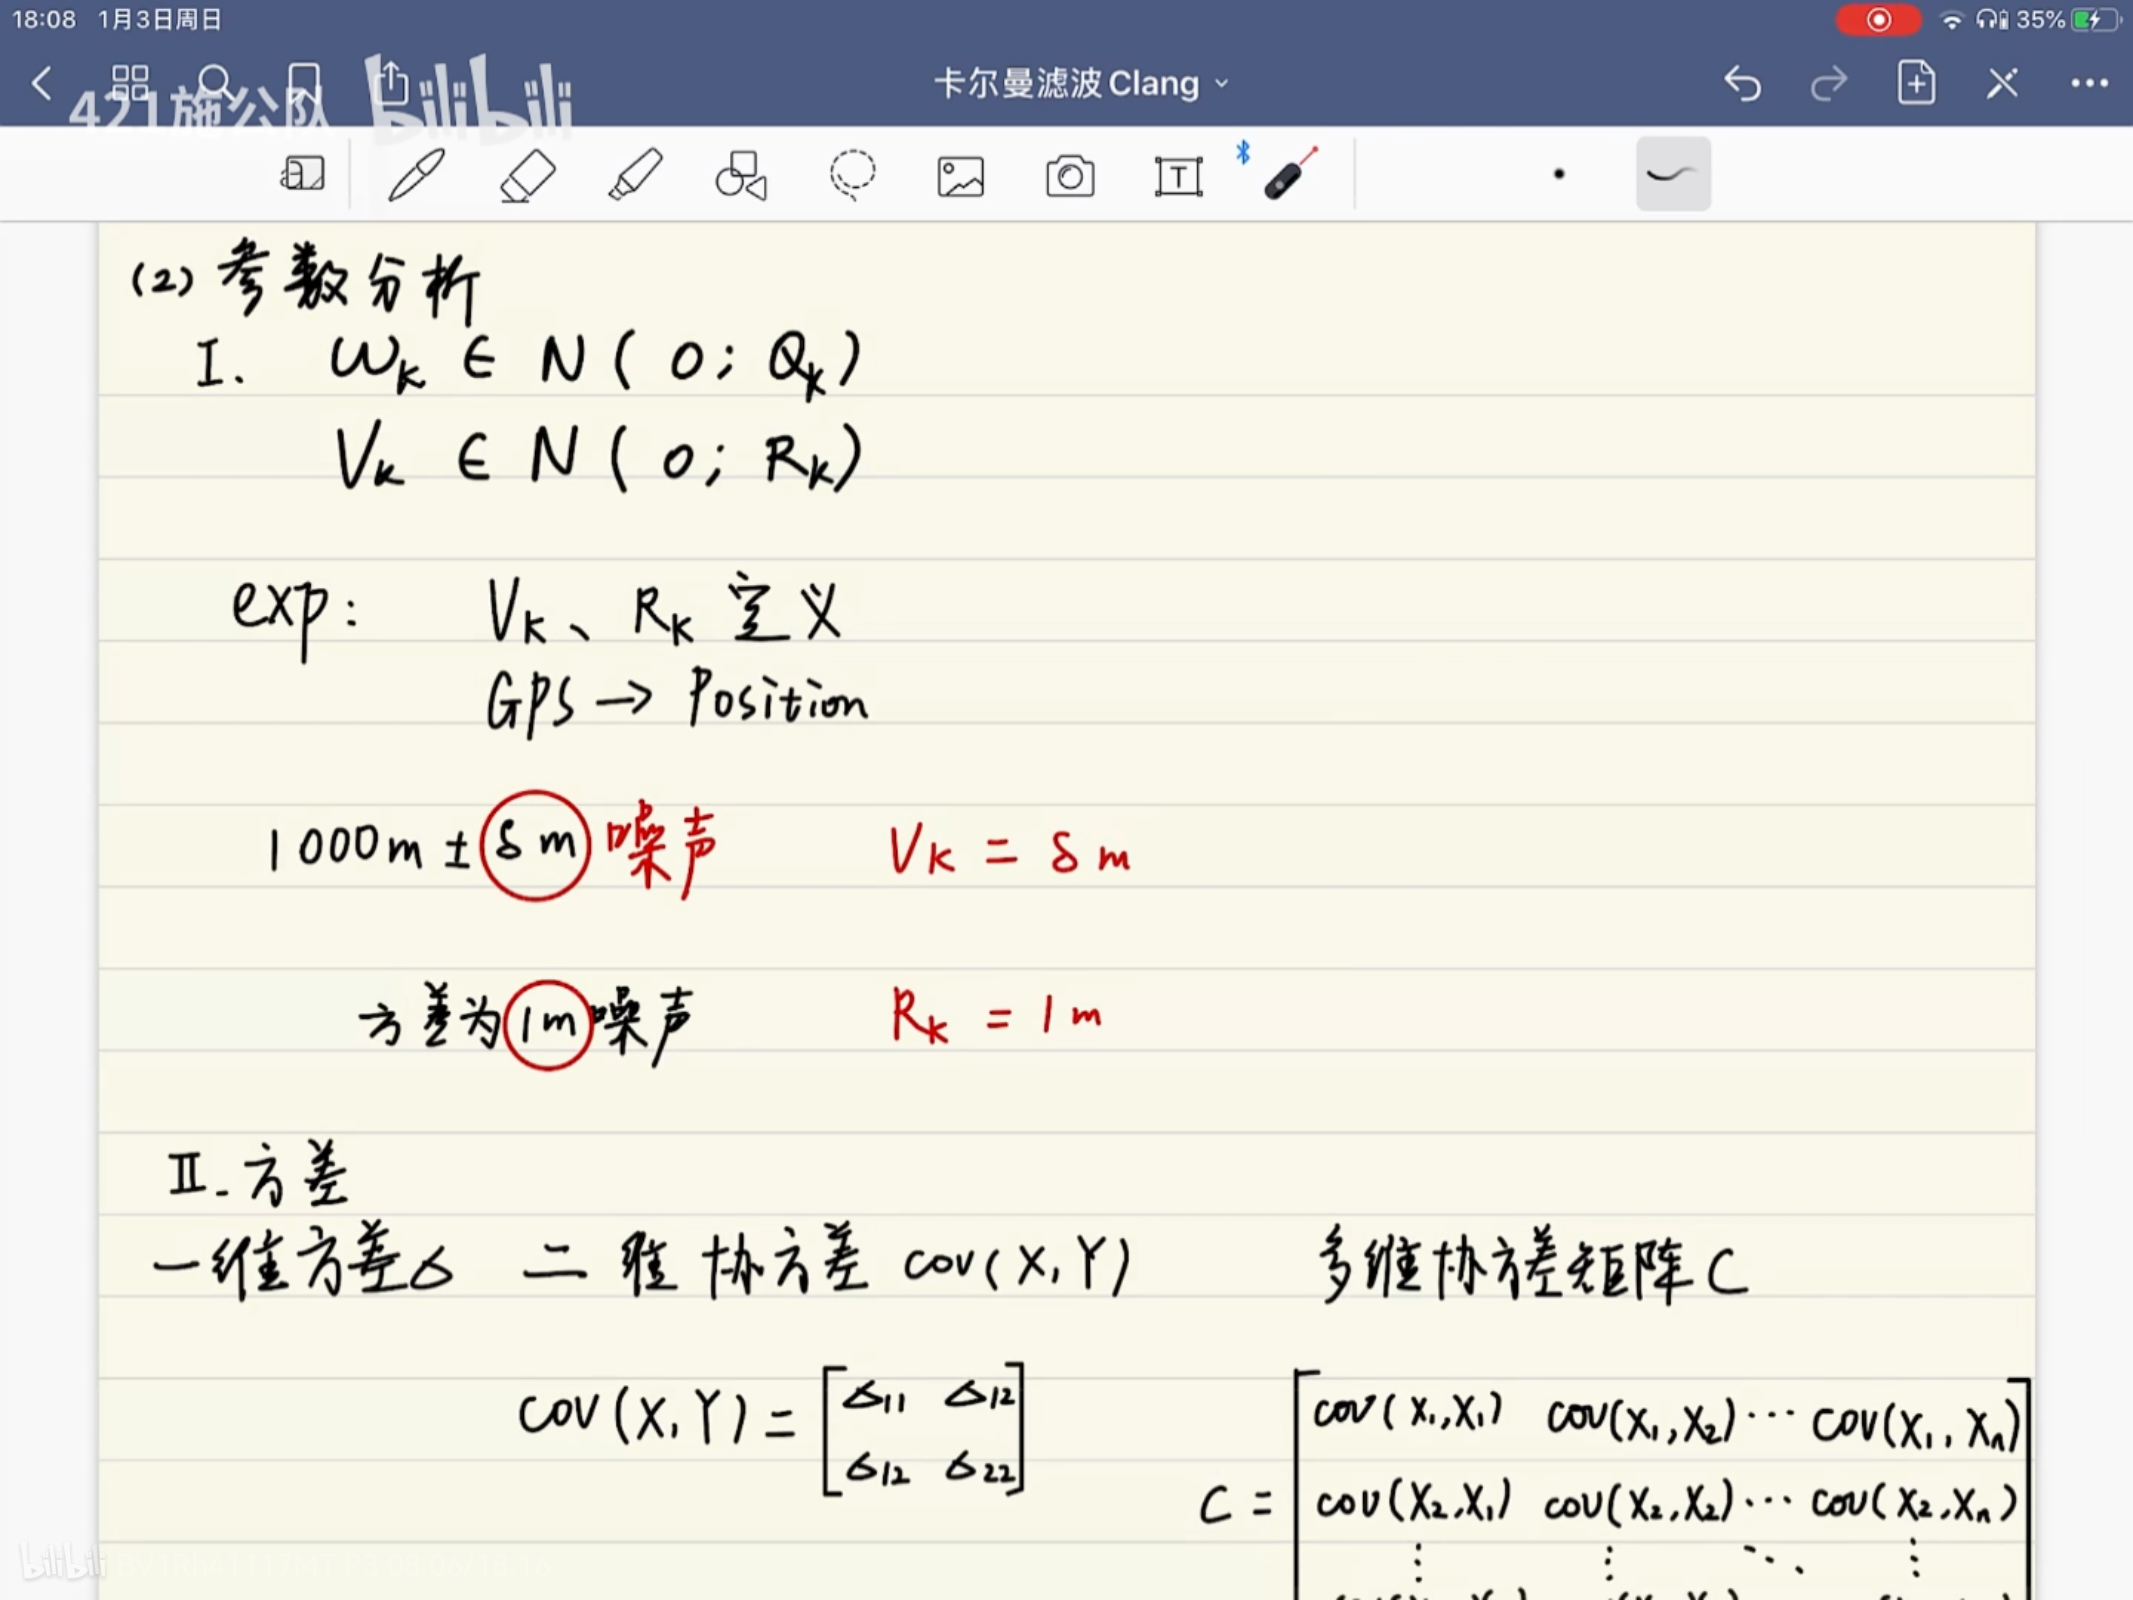 18:08 1月3日周日 35%
421施公队 bilibili
卡尔曼滤波Clang
(2) 参数分析
I. Wk ∈ N ( 0 ; Qk )
Vk ∈ N ( 0 ; Rk )
exp: Vk、Rk 定义
GPS → Position
1000m ± δm 噪声 Vk = δm
方差为1m噪声 Rk = 1m
II. 方差
一维方差δ 二维协方差 cov(X,Y) 多维协方差矩阵C
cov(X,Y) = [δ11 δ12
δ12 δ22]
C = [cov(X1,X1) cov(X1,X2) ··· cov(X1,Xn)
cov(X2,X1) cov(X2,X2) ··· cov(X2,Xn)
bilibili